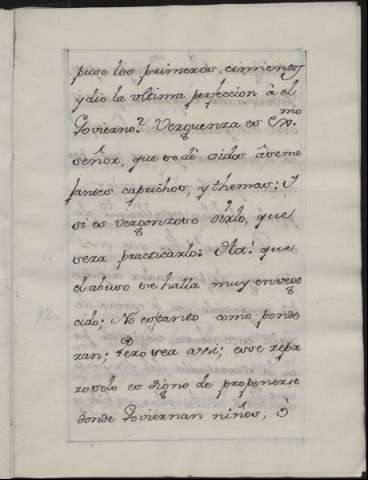 puso los primeros cimientos
y dio la ultima perfeccion à el
Govierno? Verguenza es Exmo
señor, que se dè oidos à seme
jantes caprichos, y themas: Y
si es vergonzoso oirlo, que
sera practicarlo? Ha! que
el abuso se halla muy envege
cido; No es tanto como ponde
ran; Pero sea assi; esse repa
ro solo es digno de proponerse
donde Goviernan niños, ò